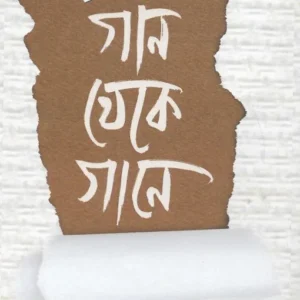 গান
থেকে
গানে